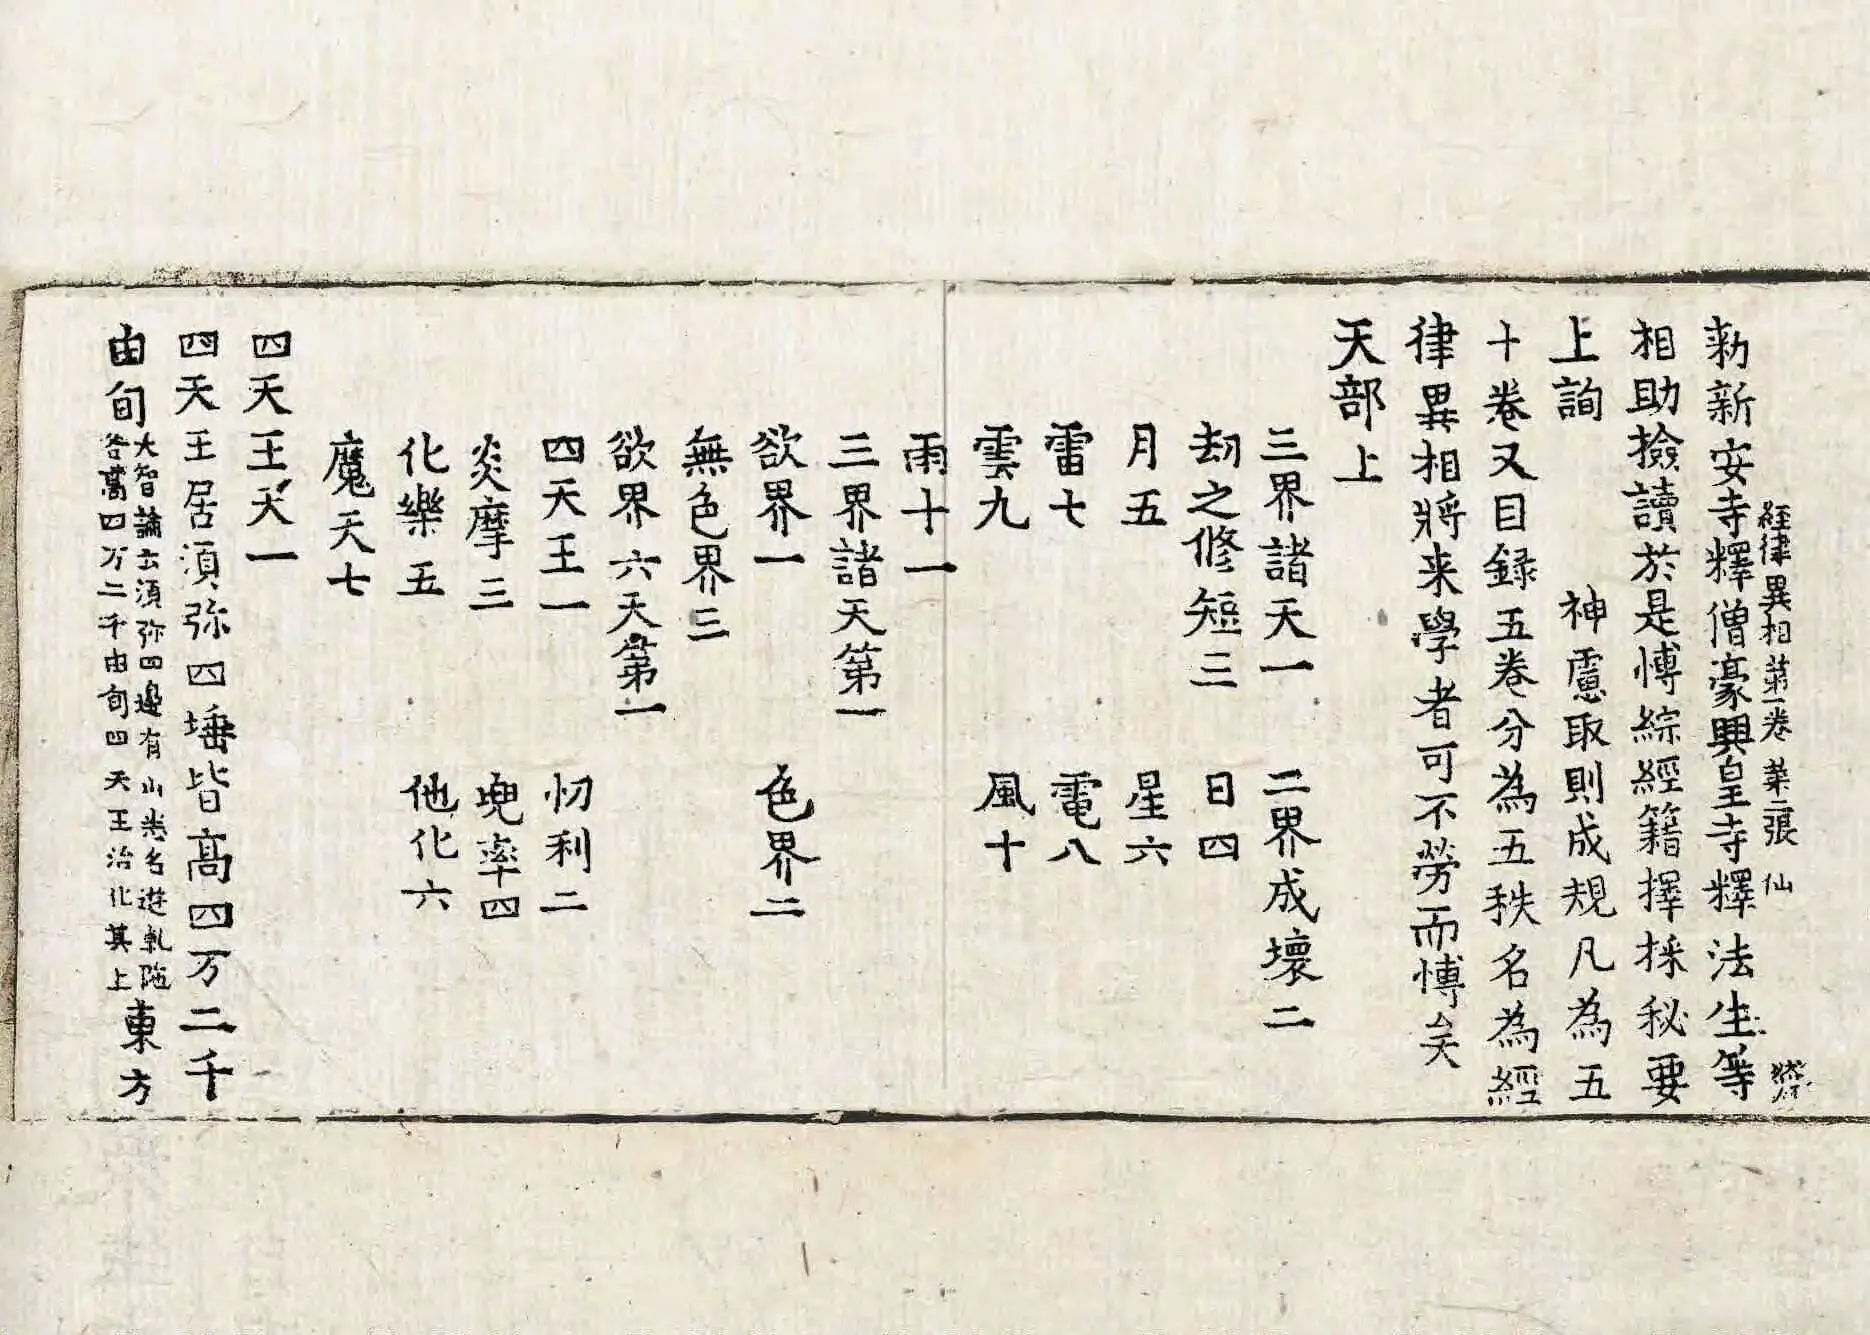 経律異相第一卷 第二張 仙
勑新安寺釋僧豪興皇寺釋法生等
相助撿讀於是博綜經籍擇採秘要
上詢 神慮取則成規凡為五
十卷又目録五卷分為五秩名為經
律異相將来學者可不勞而博矣
天部上
三界諸天一 二界成壞二
劫之修短三 日四
月五 星六
雷七 電八
雲九 風十
雨十一
三界諸天第一
欲界一 色界二
無色界三
欲界六天第一
四天王一 忉利二
炎摩三 兜率四
化樂五 他化六
魔天七
四天王天一
四天王居須弥四埵皆高四万二千
由旬大智論云須弥四邊有山悉名遊軋陁各高四万二千由旬四天王治化其上東方